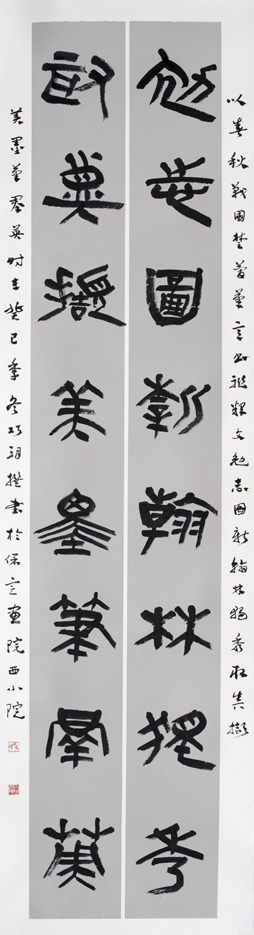 以春秋戰國楚簡筆意書聯釋文勉志圖新翰林獨秀取真擷
勉志圖新翰林獨秀
取真擷美墨筆群英
美墨筆群英時在癸巳年冬撰書於保定畫院西小院